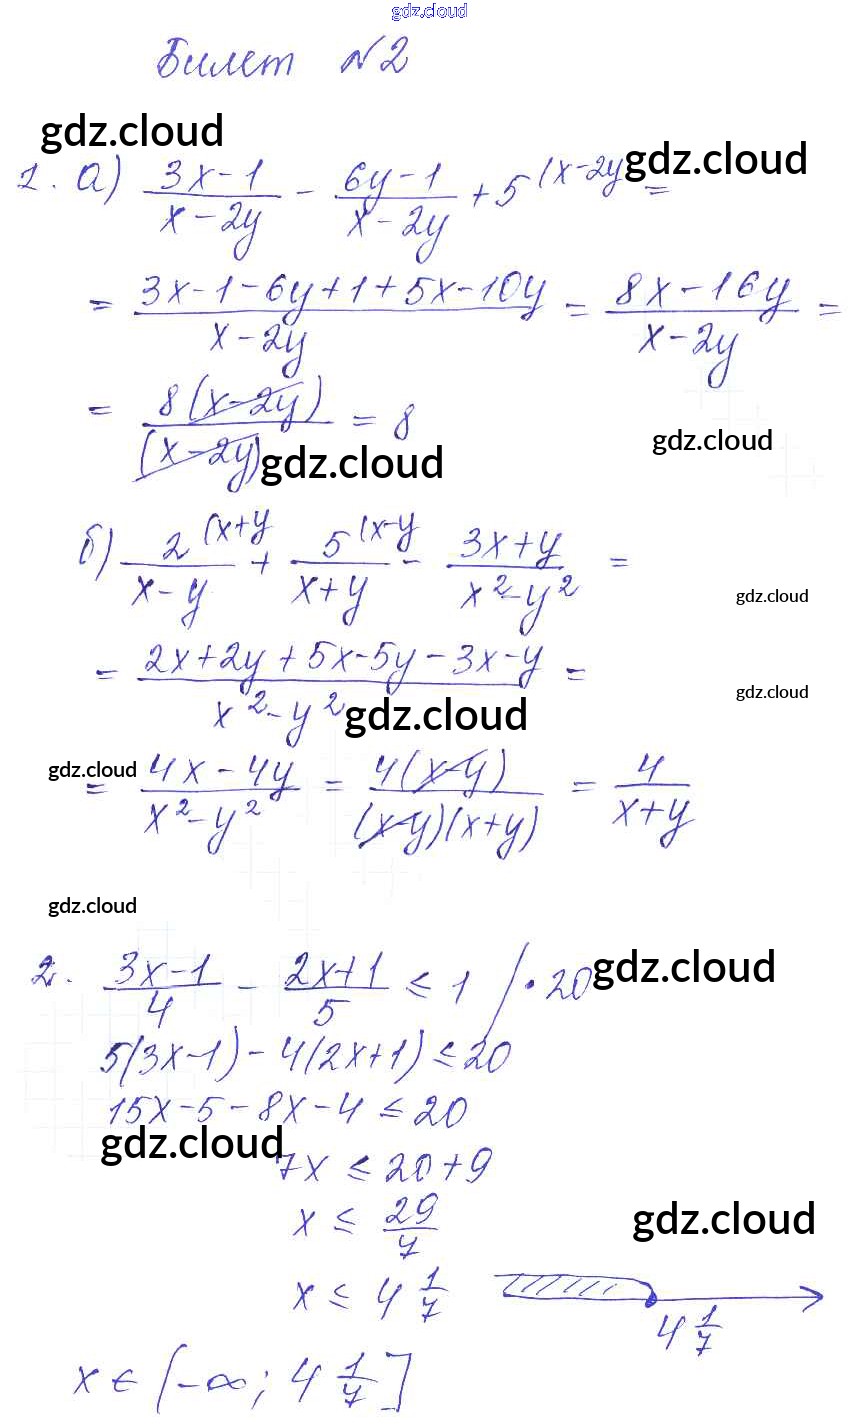 gdz.cloud
Билет №2
gdz.cloud
gdz.cloud
1. а) (3x-1)/(x-2y) - (6y-1)/(x-2y) + 5^(x-2y =
= (3x-1-6y+1+5x-10y)/(x-2y) = (8x-16y)/(x-2y) =
= 8(x-2y)/(x-2y) = 8
gdz.cloud
gdz.cloud
б) 2^(x+y/(x-y) + 5^(x-y/(x+y) - (3x+y)/(x²-y²) =
gdz.cloud
= (2x+2y+5x-5y-3x-y)/(x²-y²) =
gdz.cloud
gdz.cloud
gdz.cloud
= (4x-4y)/(x²-y²) = 4(x-y)/((x-y)(x+y)) = 4/(x+y)
gdz.cloud
2. (3x-1)/4 - (2x+1)/5 ≤ 1 /·20
gdz.cloud
5(3x-1) - 4(2x+1) ≤ 20
15x-5-8x-4 ≤ 20
gdz.cloud
7x ≤ 20+9
x ≤ 29/7
gdz.cloud
x ≤ 4 1/7
4 1/7
x ∈ (-∞; 4 1/7]